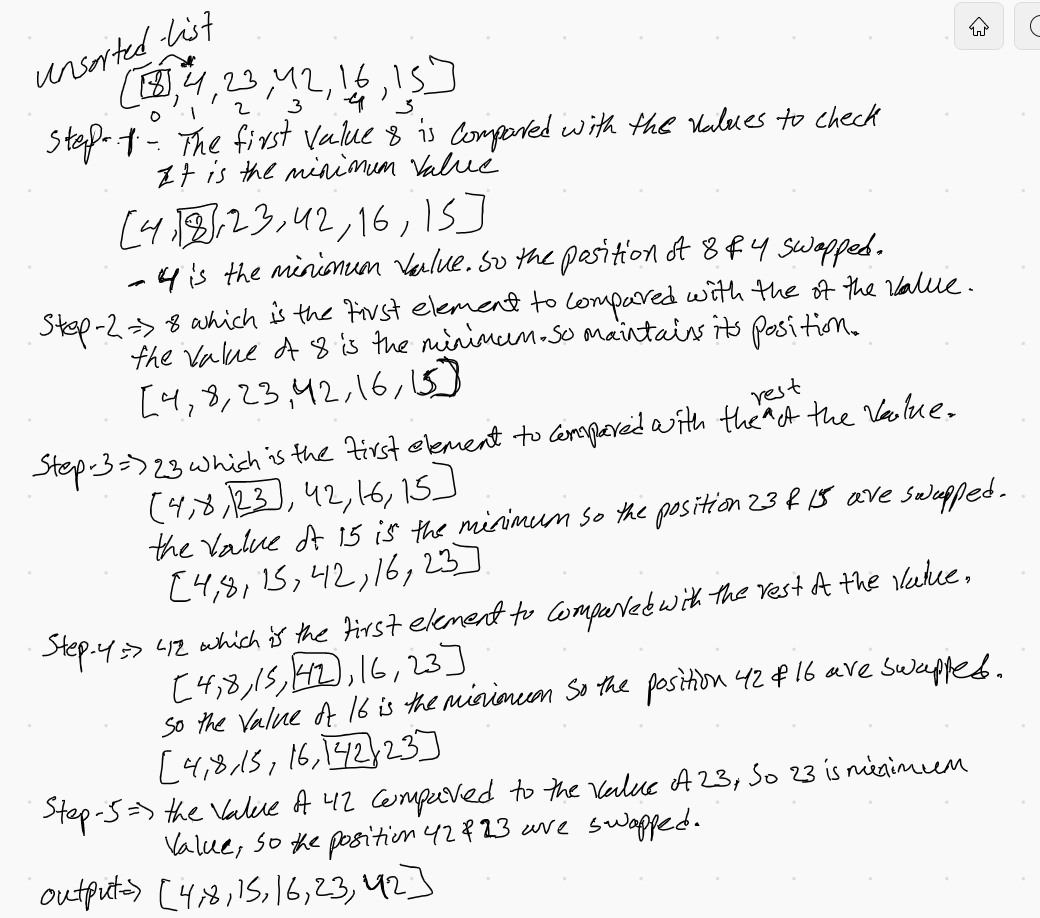 unsorted list
[8, 4, 23, 42, 16, 15]
0 1 2 3 4 5
Step-1 - The first value 8 is compared with the values to check
It is the minimum value
[4, 8, 23, 42, 16, 15]
- 4 is the minimum value. So the position of 8 & 4 swapped.
Step-2 => 8 which is the first element to compared with the of the value.
the value of 8 is the minimum. So maintains its position.
[4, 8, 23, 42, 16, 15]
Step-3 => 23 which is the first element to compared with the rest of the value.
[4, 8, 23, 42, 16, 15]
the value of 15 is the minimum so the position 23 & 15 are swapped.
[4, 8, 15, 42, 16, 23]
Step-4 => 42 which is the first element to compared with the rest of the value.
[4, 8, 15, 42, 16, 23]
so the value of 16 is the minimum so the position 42 & 16 are swapped.
[4, 8, 15, 16, 42, 23]
Step-5 => the value of 42 compared to the value of 23, So 23 is minimum
value, so the position 42 & 23 are swapped.
output => [4, 8, 15, 16, 23, 42]